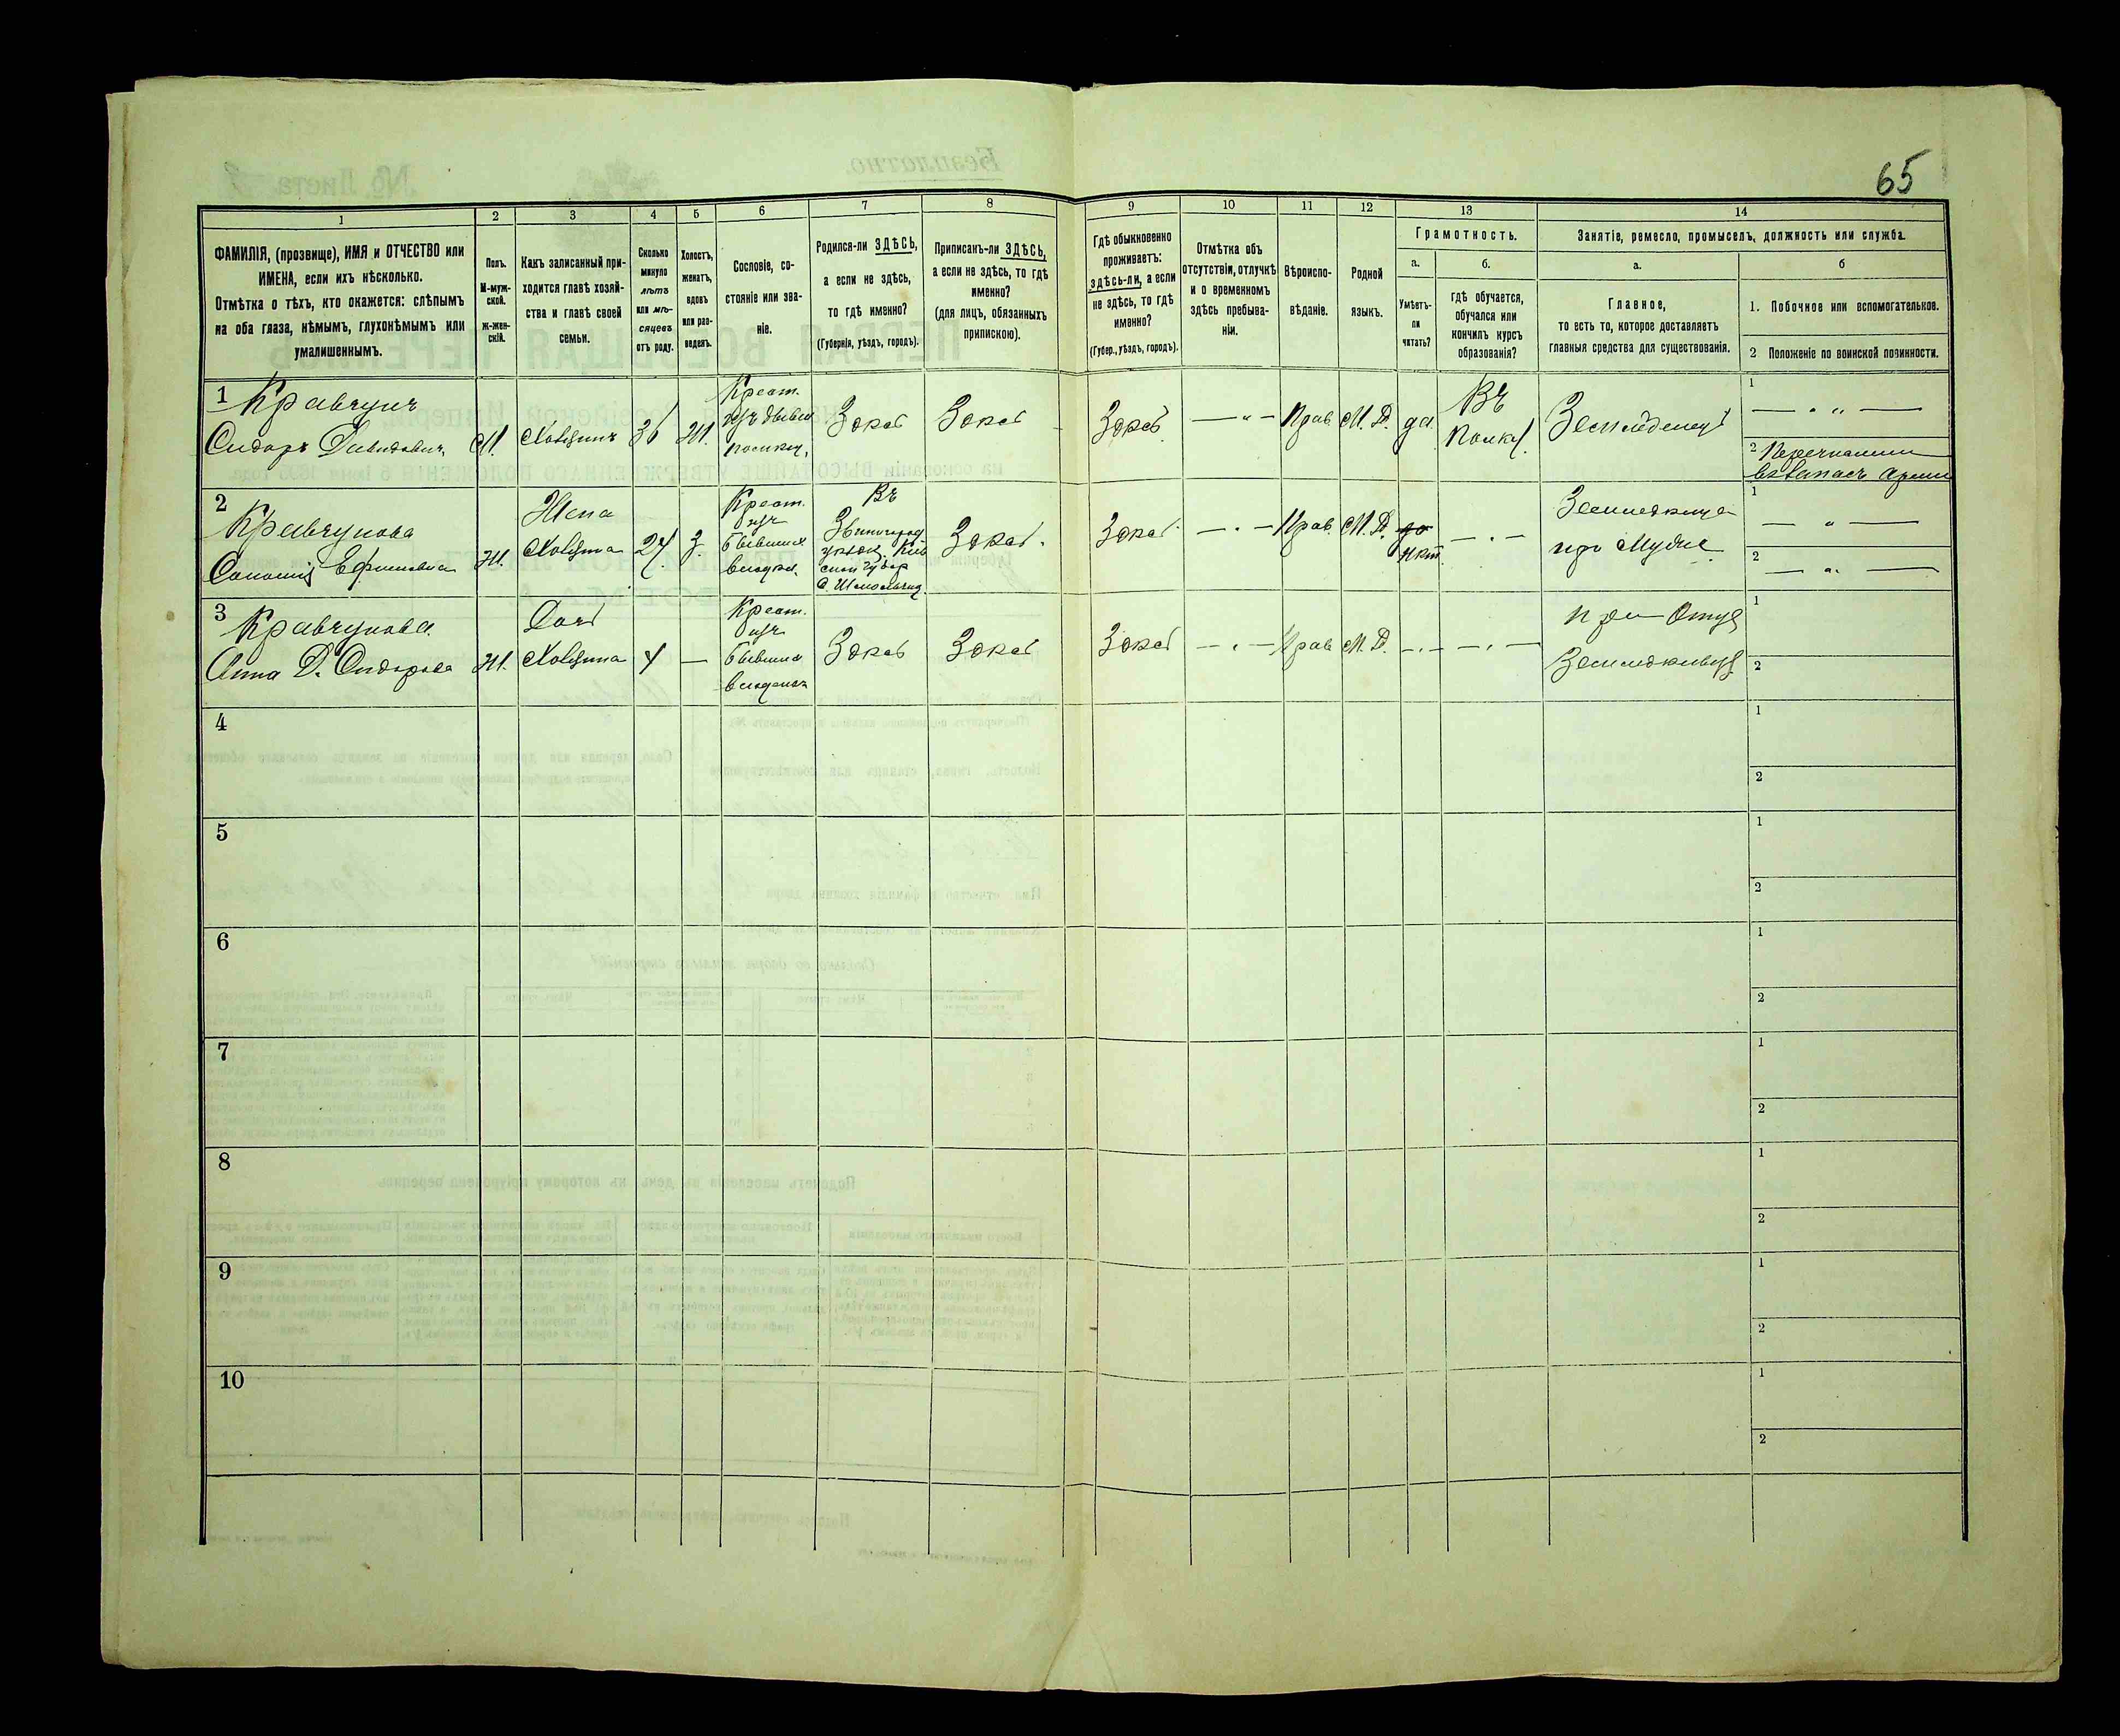 65
1
2
3
4
5
6
7
8
9
10
11
12
13
14
ФАМИЛІЯ, (прозвище), ИМЯ и ОТЧЕСТВО или
ИМЕНА, если ихъ нѣсколько.
Отмѣтка о тѣхъ, кто окажется: слѣпымъ
на оба глаза, нѣмымъ, глухонѣмымъ или
умалишеннымъ.
Полъ.
М-муж-
ской.
ж-жен-
скій.
Какъ записанный при-
ходится главѣ хозяй-
ства и главѣ своей
семьи.
Сколько
минуло
лѣтъ
или мѣ-
сяцевъ
отъ роду.
Холостъ,
женатъ,
вдовъ
или раз-
веденъ.
Сословіе, со-
стояніе или зва-
ніе.
Родился-ли ЗДѢСЬ,
а если не здѣсь,
то гдѣ именно?
(Губернія, уѣздъ, городъ).
Приписанъ-ли ЗДѢСЬ,
а если не здѣсь, то гдѣ
именно?
(для лицъ, обязанныхъ
припискою).
Гдѣ обыкновенно
проживаетъ:
здѣсь-ли, а если
не здѣсь, то гдѣ
именно?
(Губер., уѣздъ, городъ).
Отмѣтка объ
отсутствіи, отлучкѣ
и о временномъ
здѣсь пребыва-
ніи.
Вѣроиспо-
вѣданіе.
Родной
языкъ.
Грамотность.
а.
Умѣетъ-
ли
читать?
б.
гдѣ обучается,
обучался или
кончилъ курсъ
образованія?
Занятіе, ремесло, промыселъ, должность или служба.
а.
Главное,
то есть то, которое доставляетъ
главныя средства для существованія.
б
1. Побочное или вспомогательное.
2 Положеніе по воинской повинности.
1
Кравчунъ
Сидоръ Давидовичъ
М.
Хозяинъ
36
Ж.
Крест.
изъ бывш
Здѣсь
Здѣсь
Здѣсь
— „ —
Прав.
М. Р.
да
Въ
Полку
Земледелецъ
1
2
въ запасъ Арміи
2
Кравчунова
Ефимовна
Ж.
Жена
Хозяина
27
З.
Крест.
изъ
бывшихъ
владѣл.
Въ
Звенигород.
уѣзд. Кіев
ской губер
Здѣсь
Здѣсь
Прав.
М. Р.
да
Нѣт
при Мужѣ
1
2
3
Кравчунова
Анна Д. Сидорова
Ж.
Дочь
Хозяина
4
—
Крест.
изъ
бывших
Здѣсь
Здѣсь
Здѣсь
Прав
М. Р.
при Отцѣ
Земледельцѣ
1
2
4
1
2
5
1
2
6
1
2
7
1
2
8
1
2
9
1
2
10
1
2